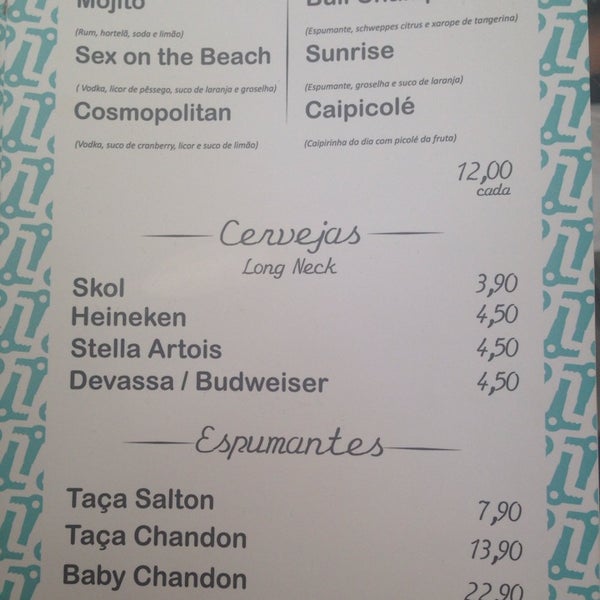 Mojito
(Rum, hortelã, soda e limão)
Sex on the Beach
( Vodka, licor de pêssego, suco de laranja e groselha)
Cosmopolitan
(Vodka, suco de cranberry, licor e suco de limão)
(Espumante, schweppes citrus e xarope de tangerina)
Sunrise
(Espumante, groselha e suco de laranja)
Caipicolé
(Caipirinha do dia com picolé da fruta)
12,00
cada
Cervejas
Long Neck
Skol 3,90
Heineken 4,50
Stella Artois 4,50
Devassa / Budweiser 4,50
Espumantes
Taça Salton 7,90
Taça Chandon 13,90
Baby Chandon 22,90